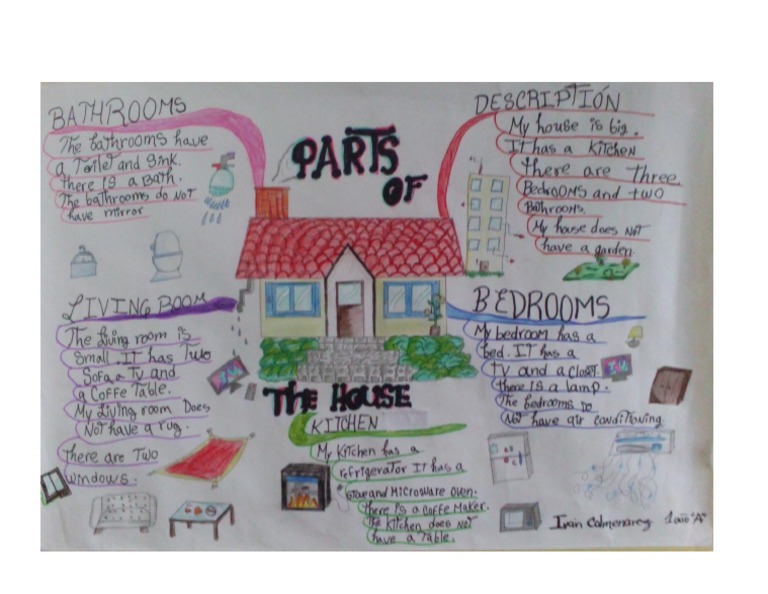 PARTS
OF
THE HOUSE
BATHROOMS
The bathrooms have
a Toilet and Sink.
there is a Bath.
The bathrooms do NOT
have mirror
DESCRIPTIÓN
My house is big.
IT has a Kitchen
there are three
BedrOOMS and two
Bathrooms.
My house does NOT
have a garden.
LIVING ROOM
The Living room is
Small. IT has Two
Sofa, a TV and
a Coffe Table.
My Living room Does
Not have a rug.
there are Two
windows.
BEDROOMS
My bedroom has a
bed. IT has a
TV and a closet.
there is a lamp.
The bedrooms Do
Not have air conditioning.
KITCHEN
My Kitchen has a
refrigerator IT has a
Stove and Microware oven.
there is a Coffe Maker.
the Kitchen does NOT
have a Table.
Colmenarez 1 año "A"